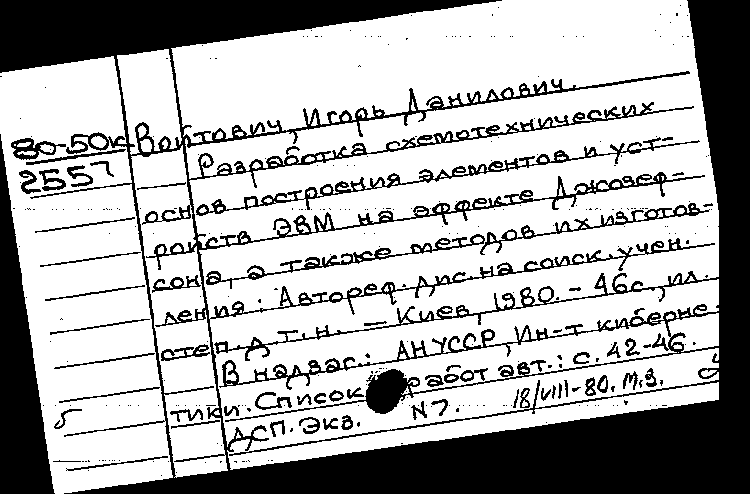 80-50к Войтович, Игорь Данилович.
2557 Разработка схемотехнических
основ построения элементов и уст-
ройств ЭВМ на эффекте Джозеф-
сона, а также методов их изготов-
ления: Автореф. дис. на соиск. учен.
степ. д т.н. — Киев, 1980. - 46с., ил.
В надзаг.: АН УССР, Ин-т киберне-
тики. Список работ авт.: с. 42-46.
ДСП. Экз. N7. 18/VIII-80. М.З.